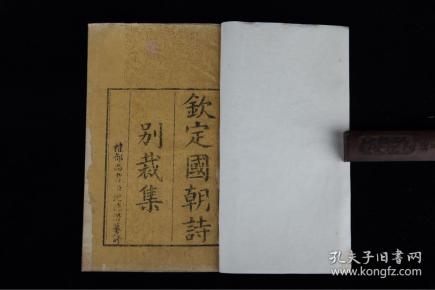 欽定國朝詩
別裁集
孔夫子旧书网
www.kongfz.com